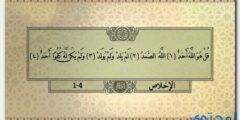 قُلْ هُوَ اللَّهُ أَحَدٌ (١) اللَّهُ الصَّمَدُ (٢) لَمْ يَلِدْ وَلَمْ يُولَدْ (٣) وَلَمْ يَكُنْ لَهُ كُفُوًا أَحَدٌ (٤)
الإخلاص 1-4